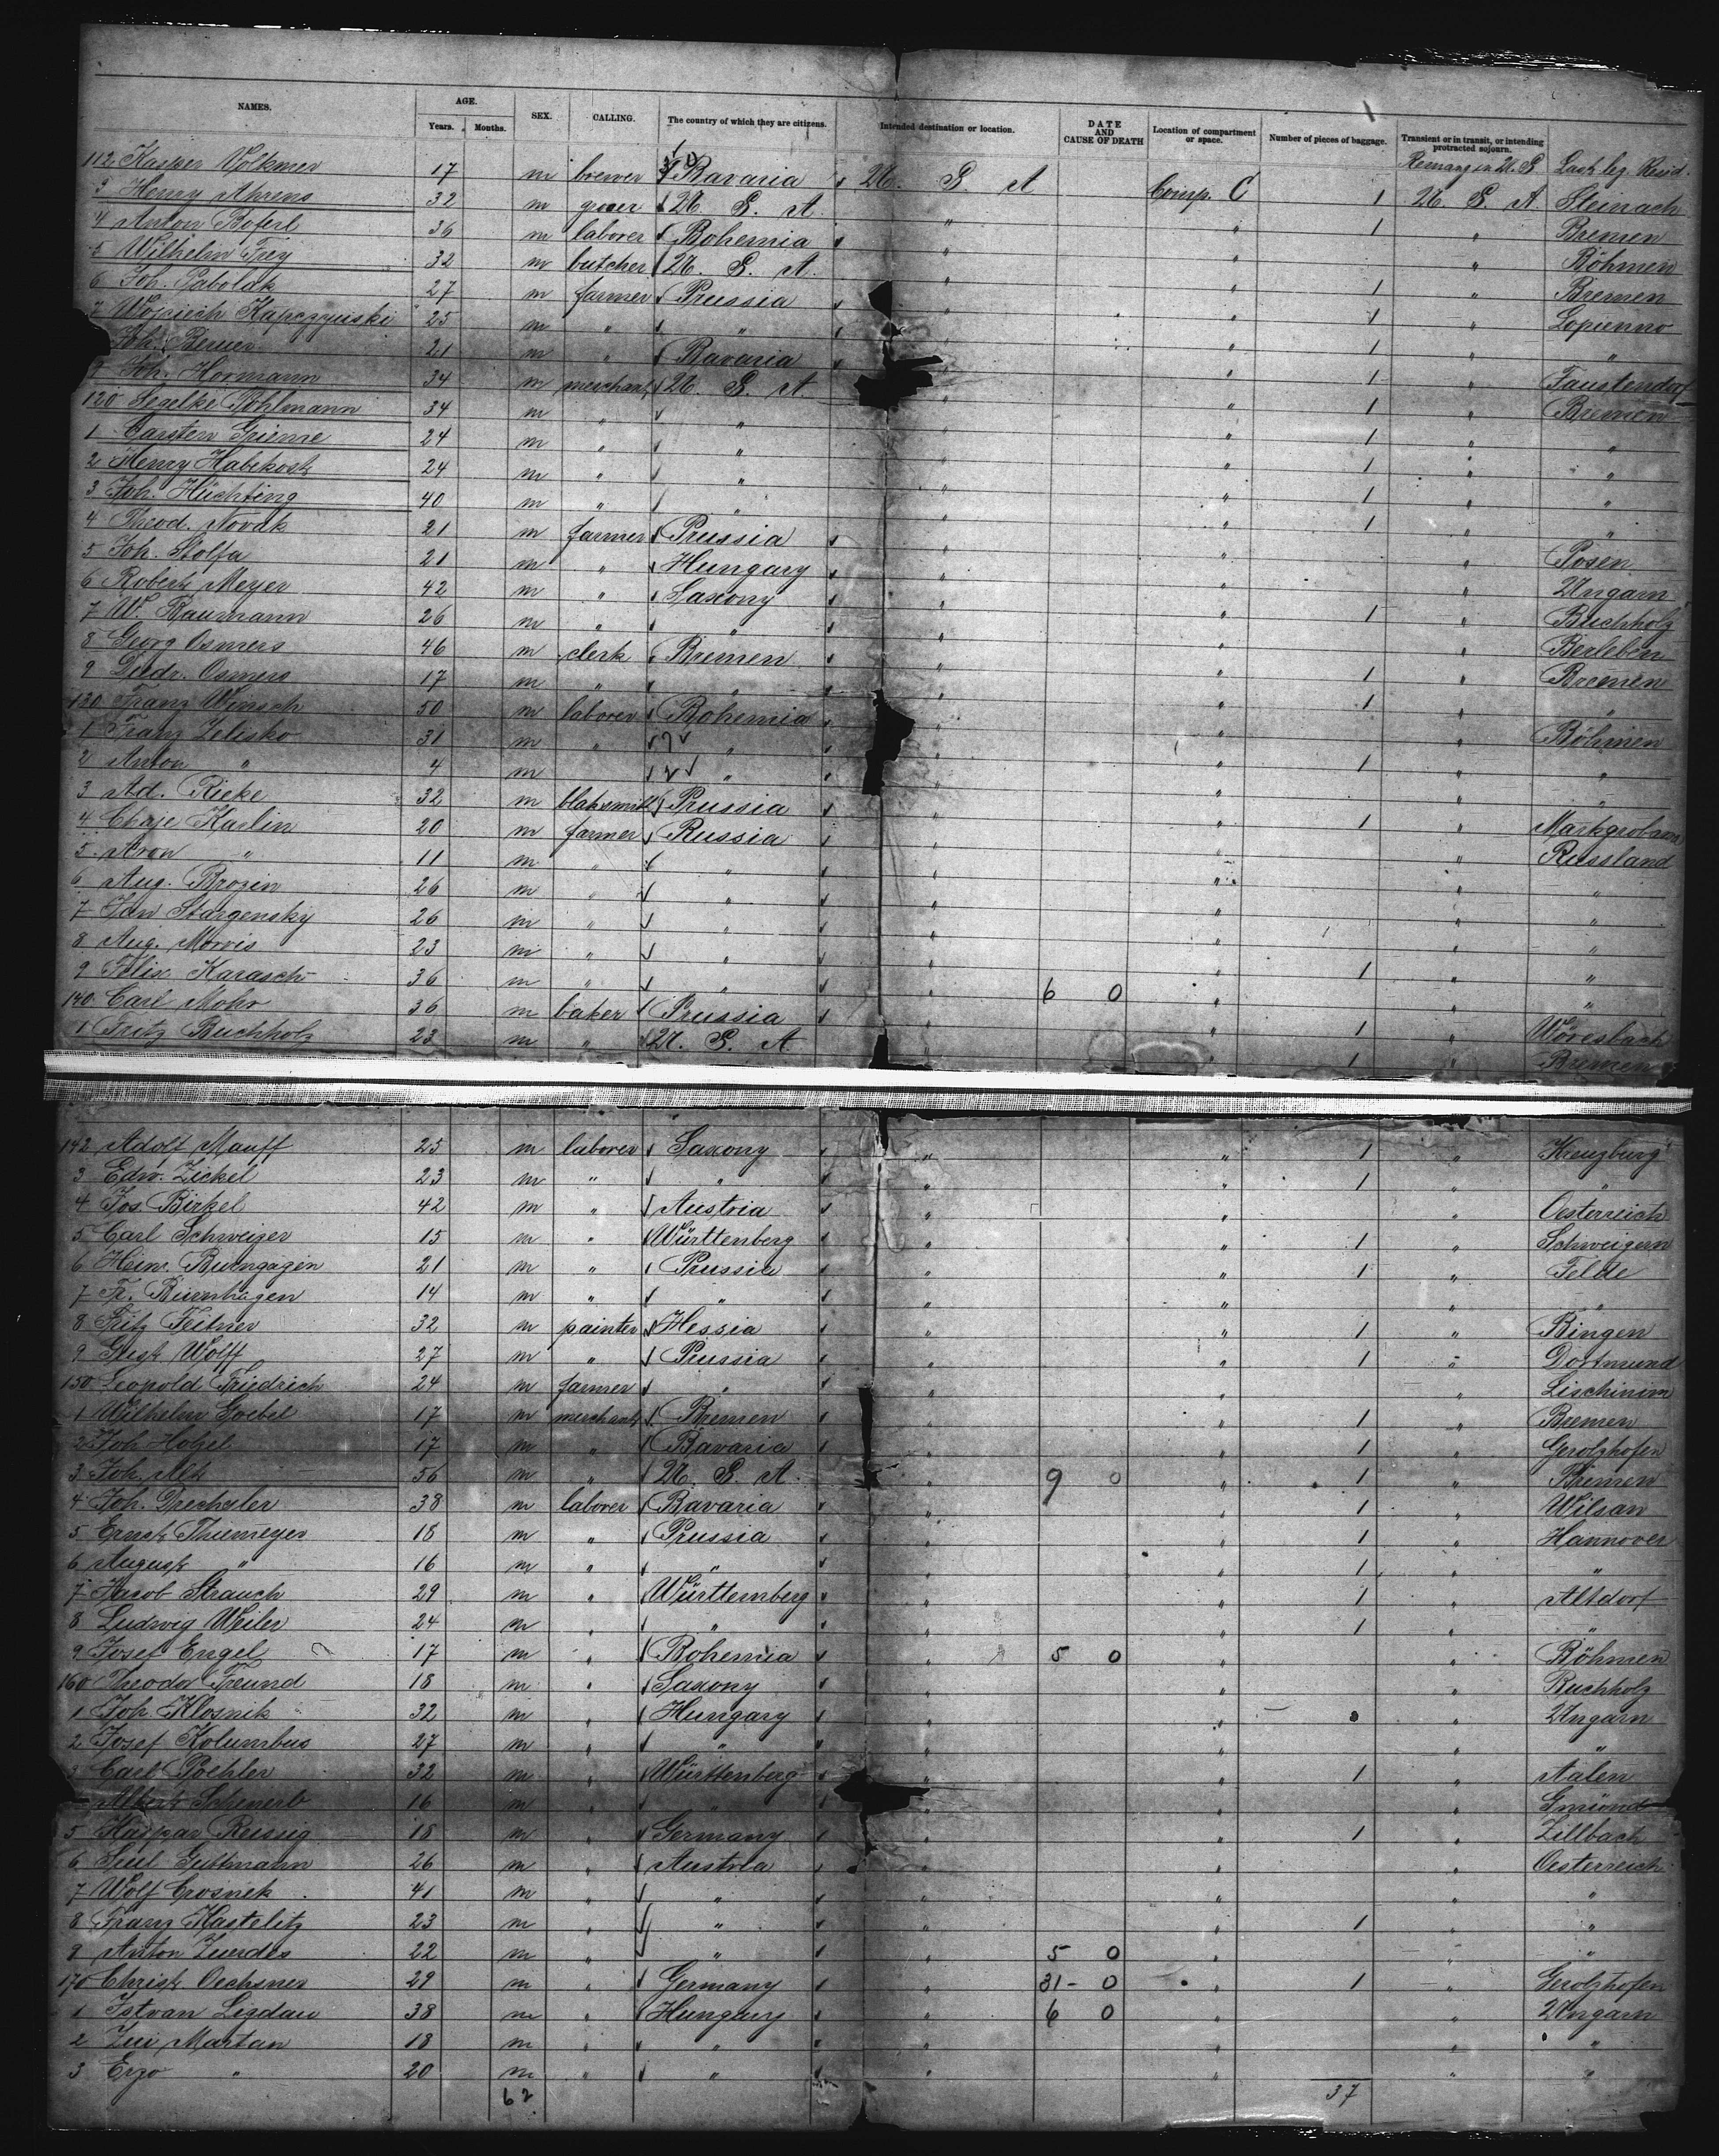 NAMES. AGE. SEX. CALLING. The country of which they are citizens. Intended destination or location. DATE AND CAUSE OF DEATH Location of compartment or space. Number of pieces of baggage. Transient or in transit, or intending protracted sojourn.
Years. Months.
Last leg. Resid.
112 Kasper Volkmer 17 m brewer Bavaria U. S. A Comp. C 1 U. S. A Steinach
3 Henry Ahrens 32 m grocer U. S. A. " " 1 " Bremen
4 Anton Boferl 36 m laborer Bohemia " " " Böhmen
5 Wilhelm Frey 32 m butcher U. S. A. " " 1 " Bremen
6 Joh. Paboldk 27 m farmer Prussia " " 1 " Lopienno
7 Wojciech Kapczynski 25 m " " " " 1 " "
Joh. Beuer 21 m " Bavaria " " 1 " Faustendorf
9 Joh. Hormann 34 m merchant U. S. A. " " 1 " Bremen
120 Seselke Pohlmann 34 m " " " " 1 " "
1 Carsten Grieme 24 m " " " " 1 " "
2 Henry Habekost 24 m " " " " 1 " "
3 Joh. Hüchting 40 m " " " " 1 " "
4 Theod. Novak 21 m farmer Prussia " " " Posen
5 Joh. Stolfa 21 m " Hungary " " " Ungarn
6 Robert Meyer 42 m " Saxony " " 1 " Buchholz
7 W. Baumann 26 m " " " " " Berleben
8 Georg Osmers 46 m clerk Bremen " " 1 " Bremen
9 Diedr. Osmers 17 m " " " " 1 " "
130 Franz Winsch 50 m laborer Bohemia " " Böhmen
1 Franz Zelesko 31 m " " " 1 " "
2 Anton " 4 m " " " "
3 Ad. Rieke 32 m blaksmith Prussia " 1 " Markgrobmen
4 Chaje Karlin 20 m farmer Russia " " " Russland
5 Aron " 11 m " " " " " "
6 Aug. Brozin 26 m " " " " " "
7 Jan Stargensky 26 m " " " " " "
8 Aug. Morris 23 m " " " " 1 " "
9 Felix Karasch 36 m " " " 6 0 " "
140 Carl Mohr 36 m baker Prussia " " 1 " Wöresbach
1 Fritz Buchholz 23 m " U. S. A. " " 1 " Bremen
142 Adolf Mauff 25 m laborer Saxony " " 1 " Kreuzburg
3 Edw. Zickel 23 m " " " " 1 " "
4 Jos. Birkel 42 m " Austria " " " Oesterreich
5 Carl Schweizer 15 m " Württenberg " " 1 " Schweigern
6 Heinr. Buengagen 21 m " Prussia " " 1 " Felde
7 Fr. Bürnhagen 14 m " " " " " "
8 Fritz Feitner 32 m painter Hessia " " 1 " Bingen
9 Gust. Wolff 27 m " Prussia " " 1 " Dortmund
150 Leopold Friedrich 24 m farmer " " " " Lischinim
1 Wilhelm Goebel 17 m merchant Bremen " " 1 " Bremen
2 Joh. Holzel 17 m " Bavaria " " 1 " Gerolzhofen
3 Joh. Alt 56 m " U. S. A. " 9 0 " 1 " Bremen
4 Joh. Drechsler 38 m laborer Bavaria " " 1 " Wilsan
5 Ernst Thumeyer 18 m " Prussia " " 1 " Hannover
6 August " 16 m " " " " 1 " "
7 Jacob Strauch 29 m " Württemberg " " 1 " Altdorf
8 Ludwig Weiler 24 m " " " " 1 " "
9 Josef Engel 17 m " Bohemia " 5 0 " " Böhmen
160 Theodor Freund 18 m " Saxony " " " Buchholz
1 Joh. Klosnik 32 m " Hungary " " " Ungarn
2 Josef Kolumbus 27 m " " " " " "
3 Carl Poehler 32 m " Württenberg " " 1 " Aalen
Albert Schenerb 16 m " " " " " Gmünd
5 Kaspar Reissig 18 m " Germany " " 1 " Zillbach
6 Guttmann 26 m " Austria " " " Oesterreich
7 Wolf Crosnek 41 m " " " " " "
8 Franz Kastelitz 23 m " " " " 1 " "
9 Anton Zurdes 22 m " " " 5 0 " " "
170 Christ. Oechsner 29 m " Germany " 31 - 0 " 1 " Gerolzhofen
1 Istvan Legdau 38 m " Hungary " 6 0 " " Ungarn
2 Martan 18 m " " " " " "
3 Erzo " 20 m " " " " " "
62 37